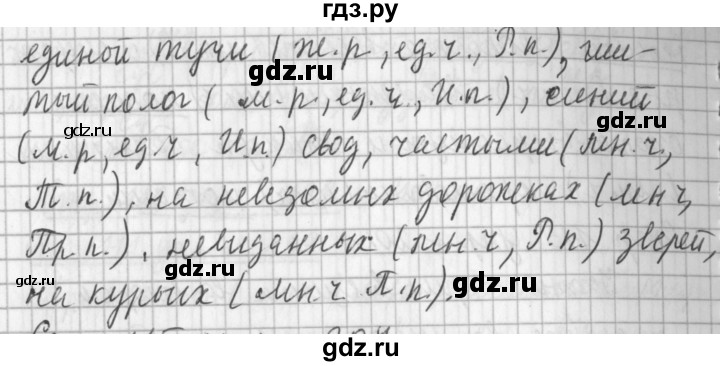 гдз.ру
единой тучи (ж.р, ед.ч., Р.п.), ши-
тый полог (м.р., ед.ч., И.п.), синий
gdz.ru
gdz.ru
(м.р, ед.ч, И.п) свод, частыми (мн.ч,
Т.п.), на неведомых дорожках (мн ч,
Пр.п.), невиданных (мн.ч, Р.п.) зверей,
gdz.ru
gdz.ru
на курьих (мн ч П.п.).
gdz.ru